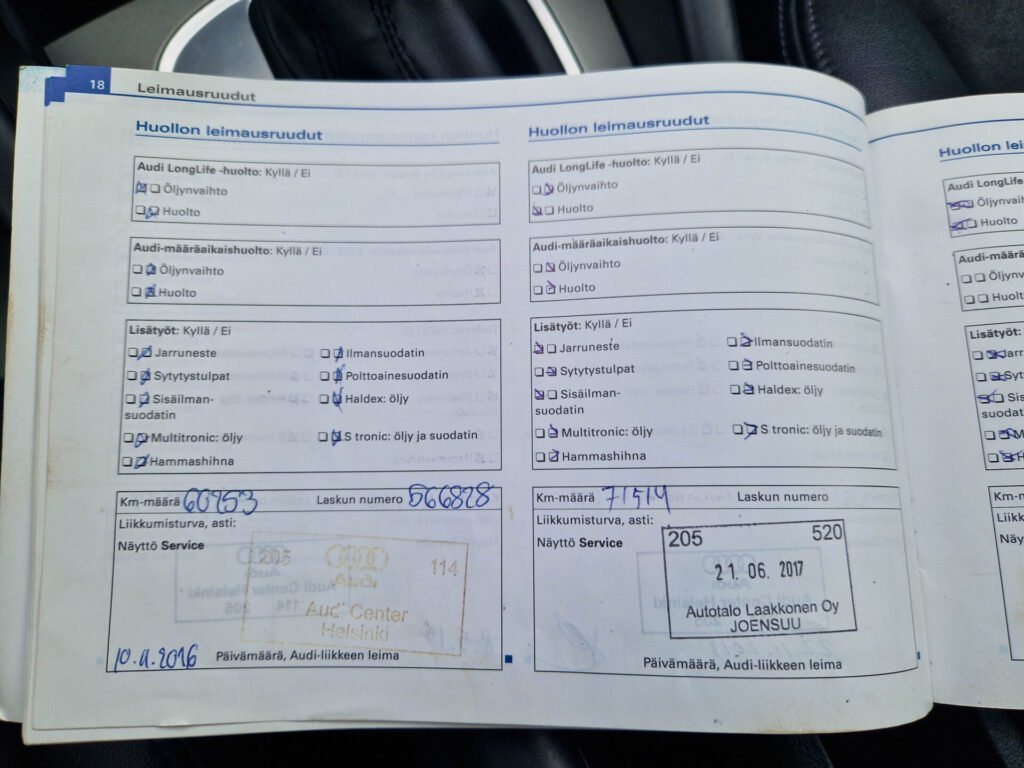 18
Leimausruudut
Huollon leimausruudut
Audi LongLife -huolto: Kyllä / Ei
Öljynvaihto
Huolto
Audi-määräaikaishuolto: Kyllä / Ei
Öljynvaihto
Huolto
Lisätyöt: Kyllä / Ei
Jarruneste
Ilmansuodatin
Sytytystulpat
Polttoainesuodatin
Sisäilman-
suodatin
Haldex: öljy
Multitronic: öljy
S tronic: öljy ja suodatin
Hammashihna
Km-määrä 60953 Laskun numero 566828
Liikkumisturva, asti:
Näyttö Service
205
114
Audi
Audi Center
Helsinki
10.11.2016 Päivämäärä, Audi-liikkeen leima
Huollon leimausruudut
Audi LongLife -huolto: Kyllä / Ei
Öljynvaihto
Huolto
Audi-määräaikaishuolto: Kyllä / Ei
Öljynvaihto
Huolto
Lisätyöt: Kyllä / Ei
Jarruneste
Ilmansuodatin
Sytytystulpat
Polttoainesuodatin
Sisäilman-
suodatin
Haldex: öljy
Multitronic: öljy
S tronic: öljy ja suodatin
Hammashihna
Km-määrä 71514 Laskun numero
Liikkumisturva, asti:
Näyttö Service
205 520
21. 06. 2017
Autotalo Laakkonen Oy
JOENSUU
Päivämäärä, Audi-liikkeen leima
Huollon lei
Audi LongLife
Öljynvaih
Huolto
Audi-määrä
Öljynv
Huolt
Lisätyöt:
Jarr
Syt
Sis
suodat
M
H
Km-m
Liikk
Näy